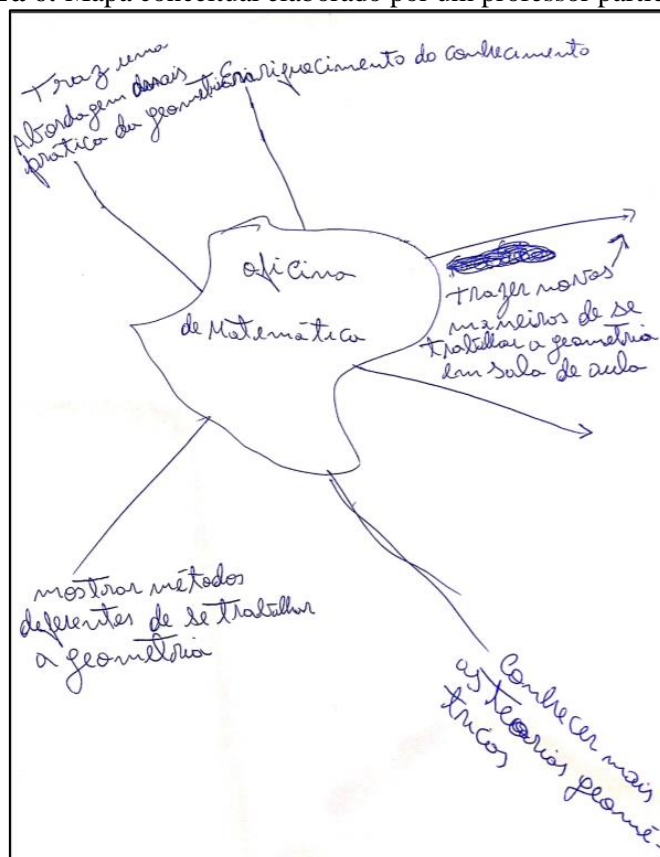 Mapa conceitual elaborado por um professor
Traz uma
Abordagem
prática da geometria
Enriquecimento do conhecimento
oficina
de Matemática
trazer novas
maneiras de se
trabalhar a geometria
em sala de aula
mostrar métodos
deferentes de se trabalhar
a geometria
Conhecer mais
as teorias geomé-
tricas